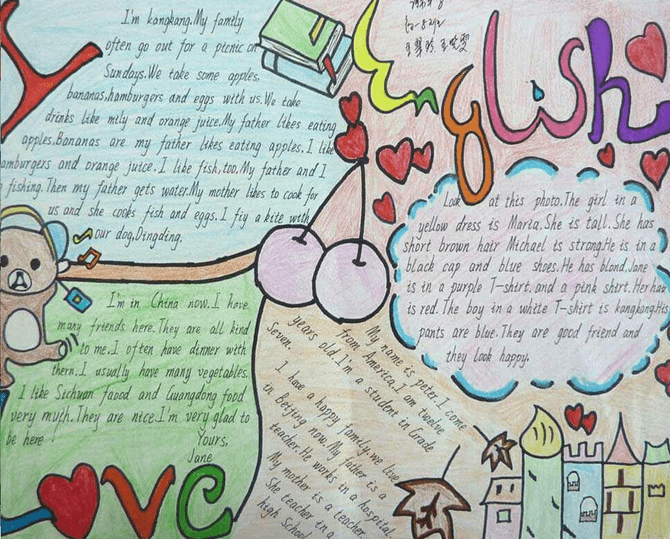 I'm kangkang.My family
often go out for a picnic on
Sundays.We take some apples,
bananas.hamburgers and eggs with us.We take
drinks like mily and orange juice.My father likes eating
apples.Bananas are my father likes eating apples.I like
hamburgers and orange juice.I like fish,too.My father and I
fishing.Then my father gets water.My mother likes to cook for
us and she cooks fish and eggs.I fiy a kite with
our dog,Dingding.
English
Look at this photo.The girl in a
yellow dress is Maria.She is tall.She has
short brown hair Michael is strong.He is in a
black cap and blue shoes.He has blond.Jane
is in a purple T-shirt.and a pink shirt.Her hair
is red.The boy in a white T-shirt is kangkong.His
pants are blue.They are good friend and
they look happy.
I'm in China now.I have
many friends here.They are all kind
to me.I often have dinner with
them.I usually have many vegetables.
I like Sichuan faood and Guangdong food
very much.They are nice.I'm very glad to
be here
Yours,
Jane
My name is peter.I come
from America.I am twelve
years old.I'm a student in Grade
Seven.
I have a happy family.we live
in Beijing now.My father is a
teacher.He works in a hospital.
My mother is a teocher
She teacher in a
high School.
Love